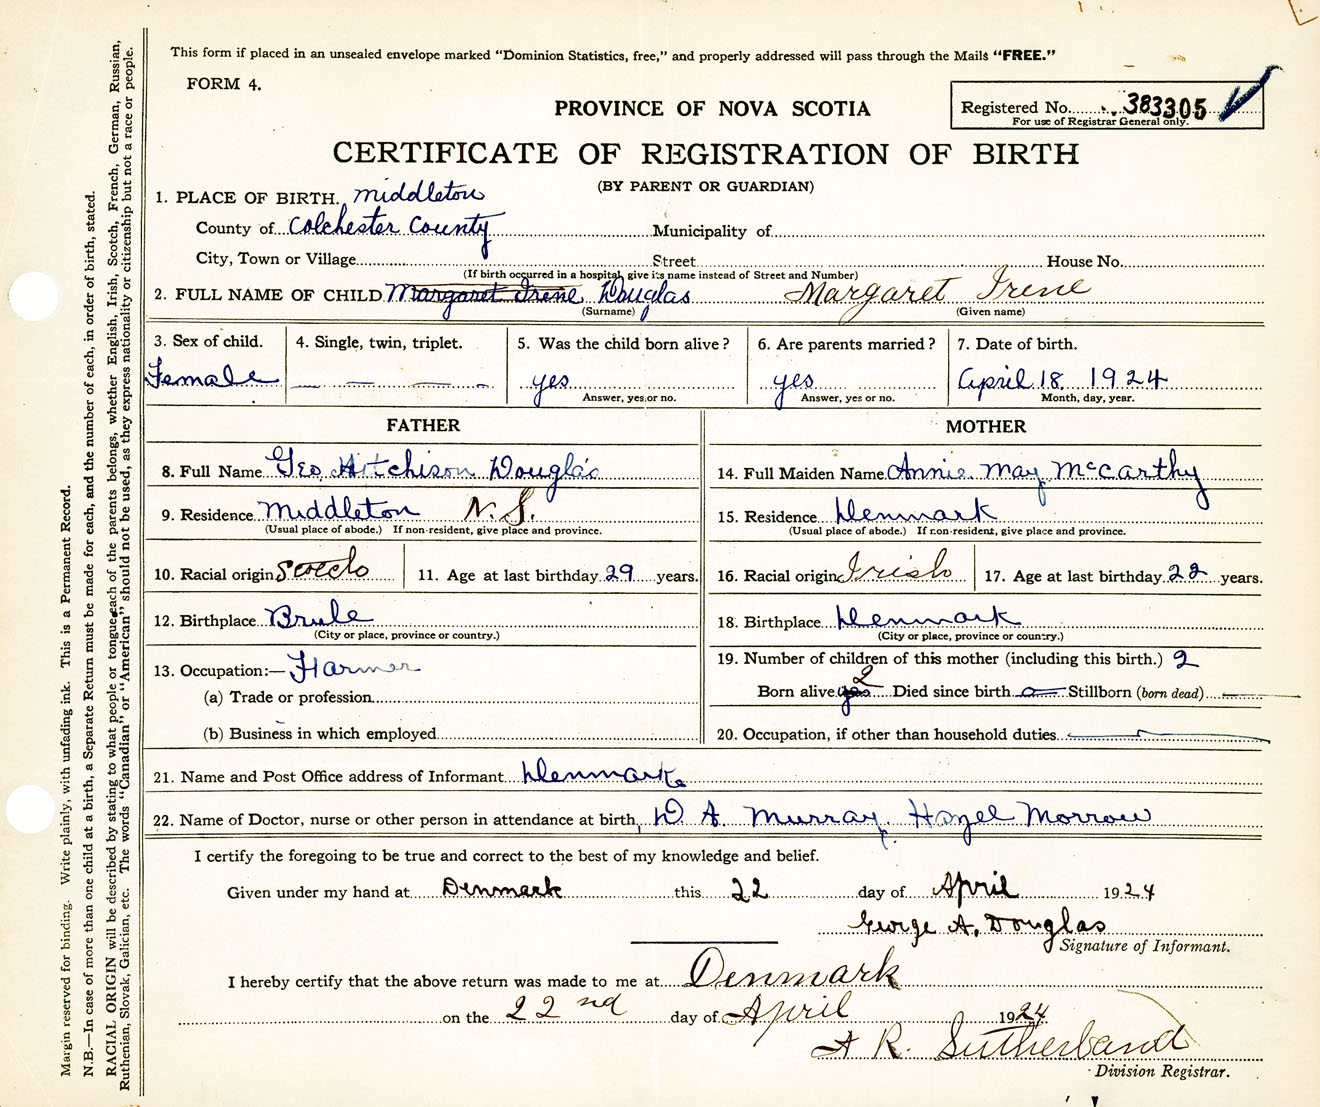 This form if placed in an unsealed envelope marked "Dominion Statistics, free," and properly addressed will pass through the Mails "FREE."
FORM 4.
PROVINCE OF NOVA SCOTIA
Registered No. 383305
For use of Registrar General only.
CERTIFICATE OF REGISTRATION OF BIRTH
(BY PARENT OR GUARDIAN)
1. PLACE OF BIRTH. Middleton
County of Colchester County Municipality of
City, Town or Village Street House No.
(If birth occurred in a hospital, give its name instead of Street and Number)
2. FULL NAME OF CHILD Margaret Irene Douglas Margaret Irene
(Surname) (Given name)
3. Sex of child. 4. Single, twin, triplet. 5. Was the child born alive? 6. Are parents married? 7. Date of birth.
Female — — — - yes yes April 18 1924
Answer, yes or no. Answer, yes or no. Month, day, year.
FATHER
8. Full Name Geo Hitchison Douglas
9. Residence Middleton N.S.
(Usual place of abode.) If non-resident, give place and province.
10. Racial origin Scotch 11. Age at last birthday 29 years.
12. Birthplace Brule
(City or place, province or country.)
13. Occupation:— Farmer
(a) Trade or profession
(b) Business in which employed
MOTHER
14. Full Maiden Name Annie May McCarthy
15. Residence Denmark
(Usual place of abode.) If non-resident, give place and province.
16. Racial origin Irish 17. Age at last birthday 22 years.
18. Birthplace Denmark
(City or place, province or country.)
19. Number of children of this mother (including this birth.) 2
Born alive yes 2 Died since birth Stillborn (born dead)
20. Occupation, if other than household duties
21. Name and Post Office address of Informant Denmark
22. Name of Doctor, nurse or other person in attendance at birth, D A Murray. Hazel Morrow
I certify the foregoing to be true and correct to the best of my knowledge and belief.
Given under my hand at Denmark this 22 day of April 1924
George A. Douglas
Signature of Informant.
I hereby certify that the above return was made to me at Denmark
on the 22nd day of April 1924
A R. Sutherland
Division Registrar.
Margin reserved for binding. Write plainly, with unfading ink. This is a Permanent Record.
N.B.—In case of more than one child at a birth, a Separate Return must be made for each, and the number of each, in order of birth, stated.
RACIAL ORIGIN will be described by stating to what people or tongue each of the parents belongs, whether English, Irish, Scotch, French, German, Russian,
Ruthenian, Slovak, Galician, etc. The words "Canadian" or "American" should not be used, as they express nationality or citizenship but not a race or people.